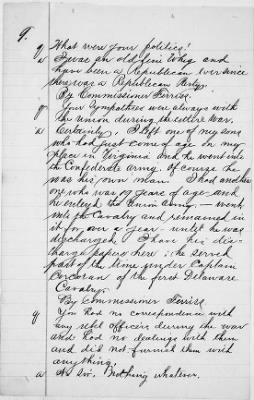 9.
Q What were your politics?
A I was an old line Whig and
have been a Republican ever since
there was a Republican Party.
By Commissioner Ferriss.
Q Your sympathies were always with
the Union during the entire war.
A Certainly. I left one of my sons
who had just come of age on my
place in Virginia and he went into
the Confederate army. Of course he
was his own man. I had another
one who was 19 years of age and
he entered the Union army — went
into the Cavalry and remained in
it for over a year - until he was
discharged. I have his dis-
charge papers here; he served
part of the time under Captain
Corcoran of the first Delaware
Cavalry.
By Commissioner Ferriss
Q You had no correspondence with
any rebel officers during the war
and had no dealings with them
and did not furnish them with
anything.
A No Sir. Nothing whatever.